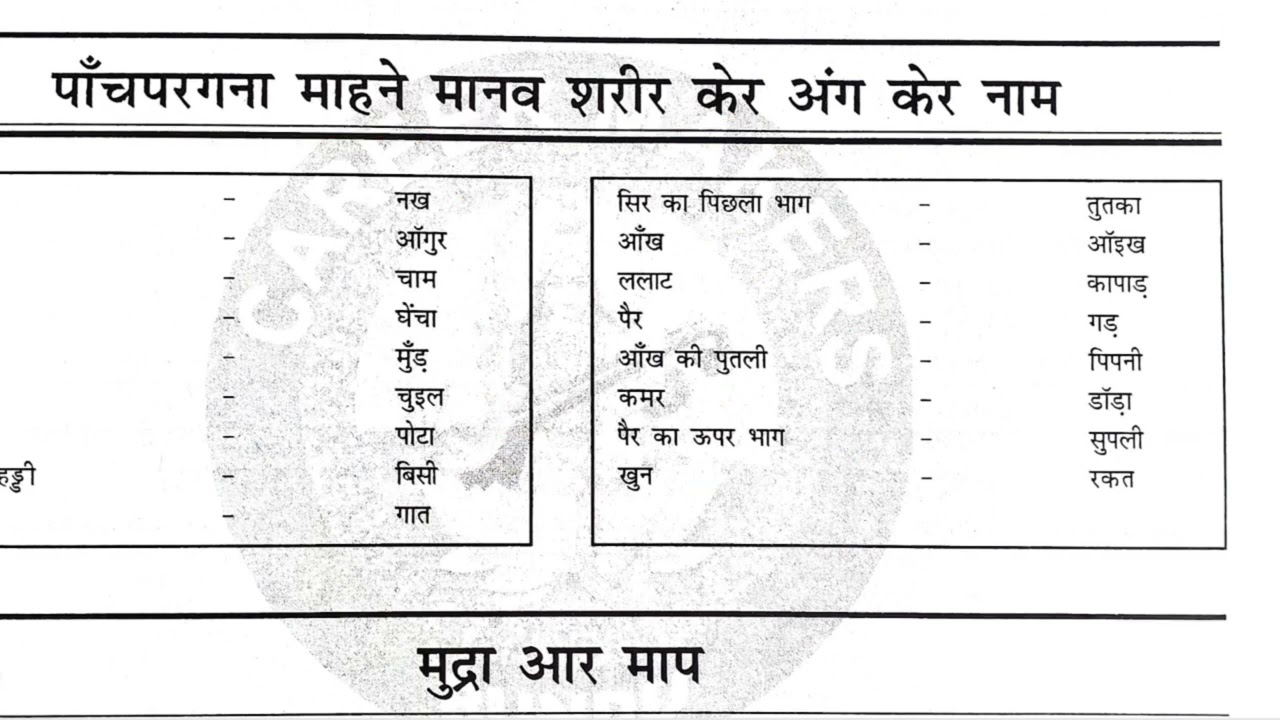 पाँचपरगना माहने मानव शरीर केर अंग केर नाम
- नख
- ऑगुर
- चाम
- घेंचा
- मुँड़
- चुइल
- पोटा
हड्डी - बिसी
- गात
सिर का पिछला भाग - तुतका
आँख - ऑइख
ललाट - कापाड़
पैर - गड़
आँख की पुतली - पिपनी
कमर - डॉड़ा
पैर का ऊपर भाग - सुपली
खुन - रकत
मुद्रा आर माप